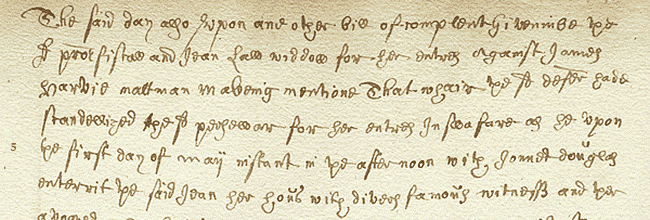 The said day also wpon ane other bill of complent givenin be the
sd proc: fiscall and Jean Law widdow for her entres against James
Harvie maltman makeing mentione That whair the sd defer hade
scandelized the sd persewar for her entres In swa fare as he vpon
the first day of may instant in the afternoon with Jonnet douglas
enterrit the said Jean her hous with divers famous witness and ther
5